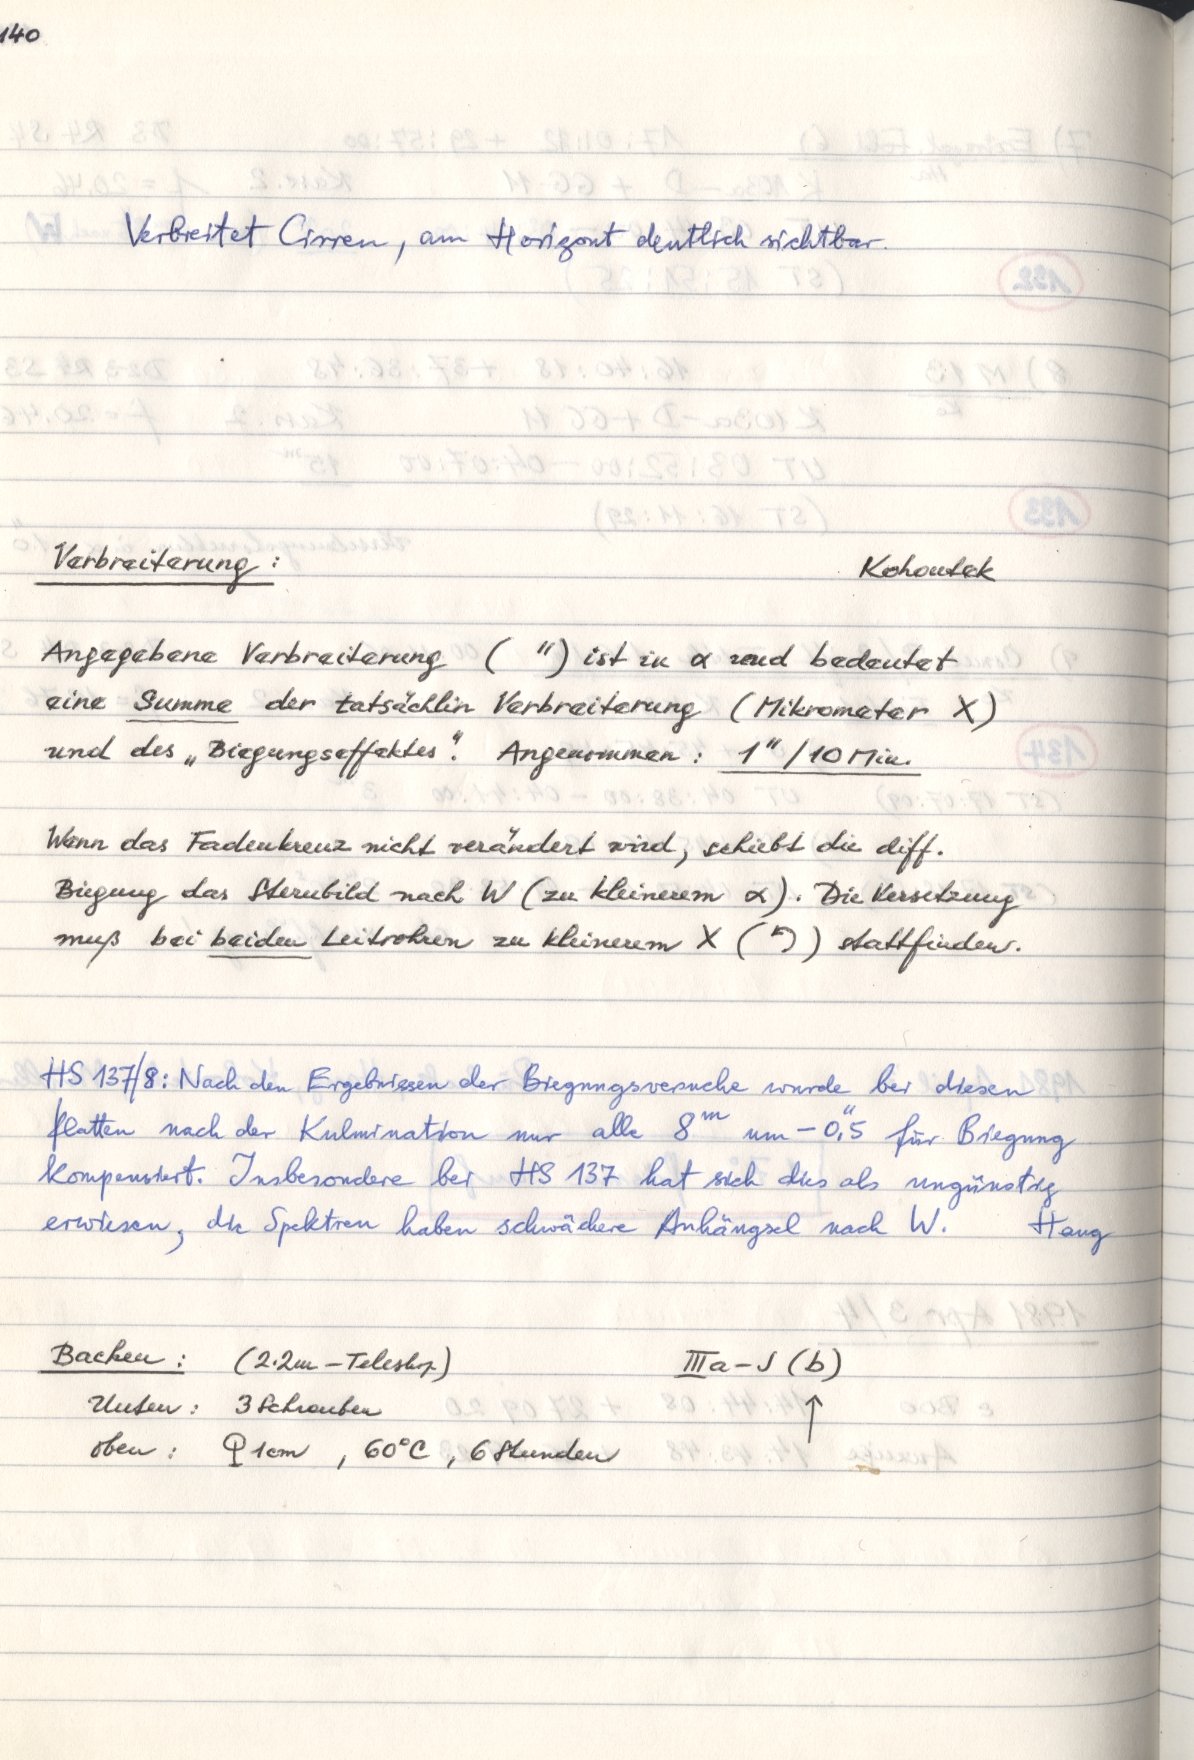 140
Verbreitet Cirren, am Horizont deutlich sichtbar.
Verbreiterung : Kohoutek
Angegebene Verbreiterung ( ") ist in α und bedeutet
eine Summe der tatsächlin Verbreiterung (Mikrometer X)
und des „Biegungseffektes". Angenommen : 1"/10 Min.
Wenn das Fadenkreuz nicht verändert wird, schiebt die diff.
Biegung das Sternbild nach W (zu kleinerem α). Die Versetzung
muß bei beiden Leitrohren zu kleinerem X (↰) stattfinden.
HS 137/8: Nach den Ergebnissen der Biegungsversuche wurde bei diesen
Platten nach der Kulmination nur alle 8ᵐ um -0",5 für Biegung
kompensiert. Insbesondere bei HS 137 hat sich dies als ungünstig
erwiesen, die Spektren haben schwächere Anhängsel nach W. Haug
Backen : (2.2m - Teleskop) IIIa-J (b)
Unten : 3 Schrauben ↑
oben : 1cm , 60°C , 6 Stunden